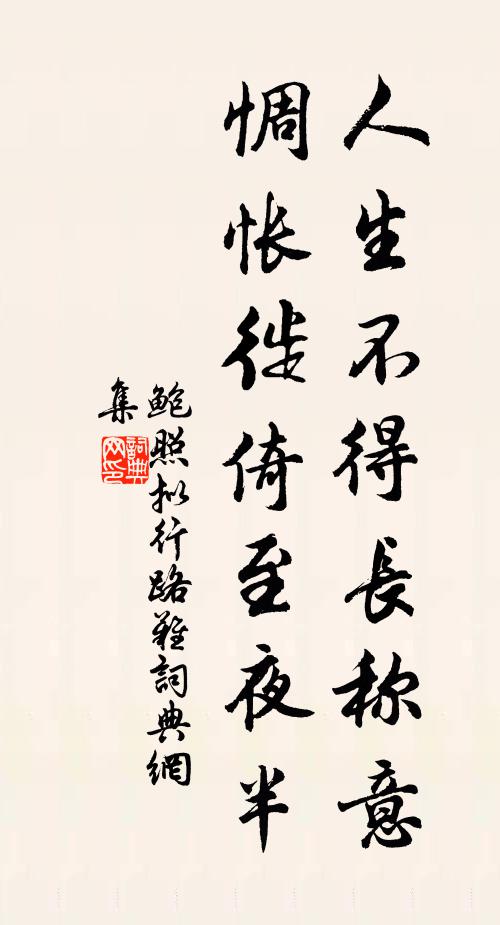 人生不得長称意
惆怅徙倚至夜半
鲍照拟行路難詞典網
集
詞典网印